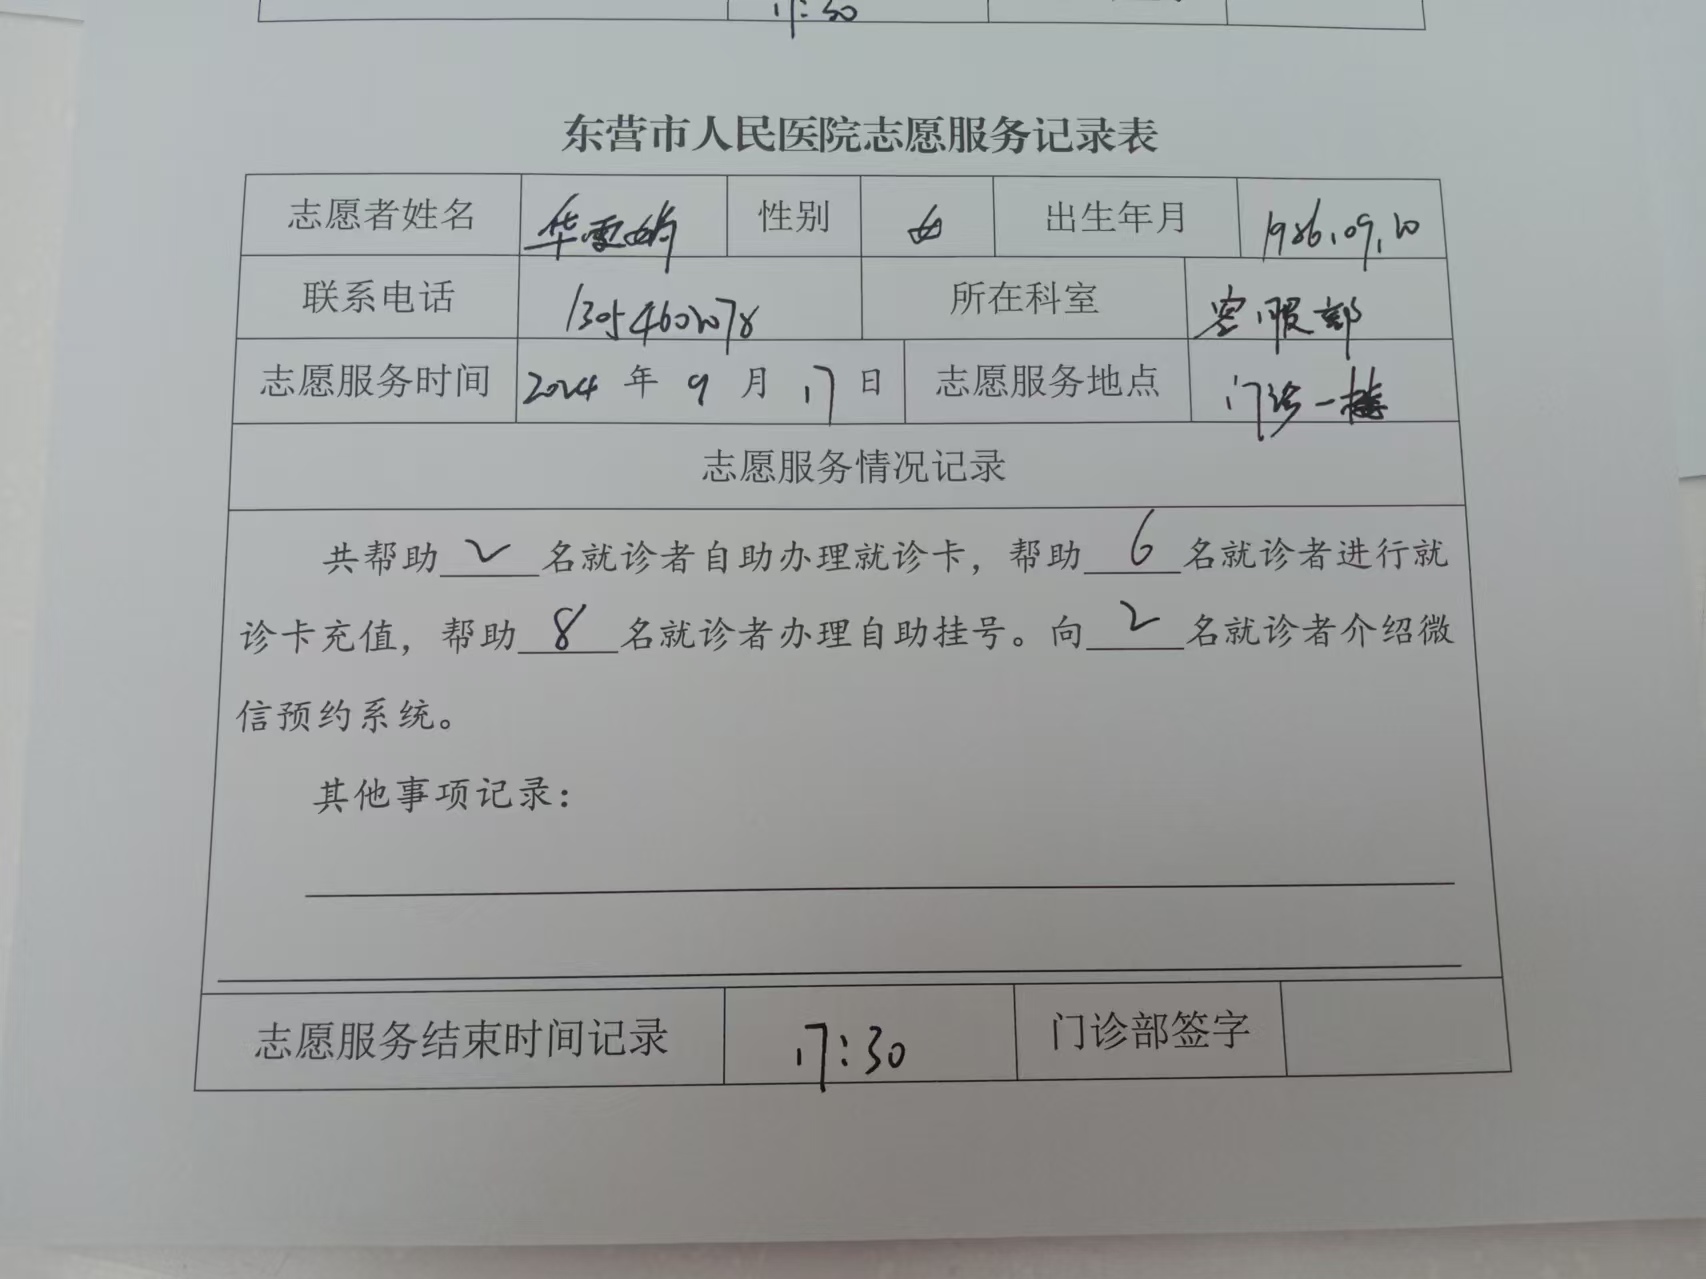 17:30
东营市人民医院志愿服务记录表
志愿者姓名 华雪娇 性别 女 出生年月 1986.09.20
联系电话 13054602078 所在科室 客服部
志愿服务时间 2024 年 9 月 17 日 志愿服务地点 门诊一楼
志愿服务情况记录
共帮助 2 名就诊者自助办理就诊卡，帮助 6 名就诊者进行就
诊卡充值，帮助 8 名就诊者办理自助挂号。向 2 名就诊者介绍微
信预约系统。
其他事项记录：
志愿服务结束时间记录 17:30 门诊部签字